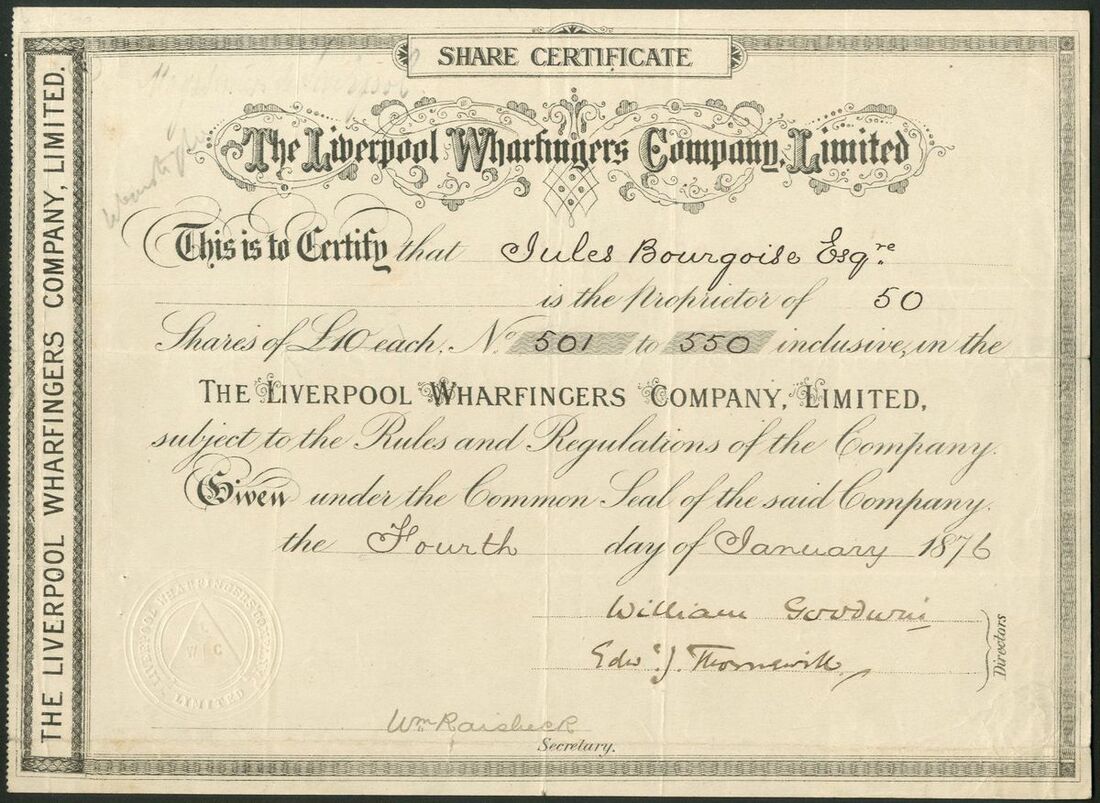 SHARE CERTIFICATE
THE LIVERPOOL WHARFINGERS COMPANY, LIMITED.
The Liverpool Wharfingers Company, Limited
This is to Certify that Jules Bourgoise Esqre
is the Proprietor of 50
Shares of £10 each, No 501 to 550 inclusive, in the
THE LIVERPOOL WHARFINGERS COMPANY, LIMITED,
subject to the Rules and Regulations of the Company.
Given under the Common Seal of the said Company.
the Fourth day of January 1876
William Goodwin
Edw. J. Thornewill
Directors
LIVERPOOL WHARFINGERS COMPANY
LIMITED
L
W C
Wm Raisbeck
Secretary.